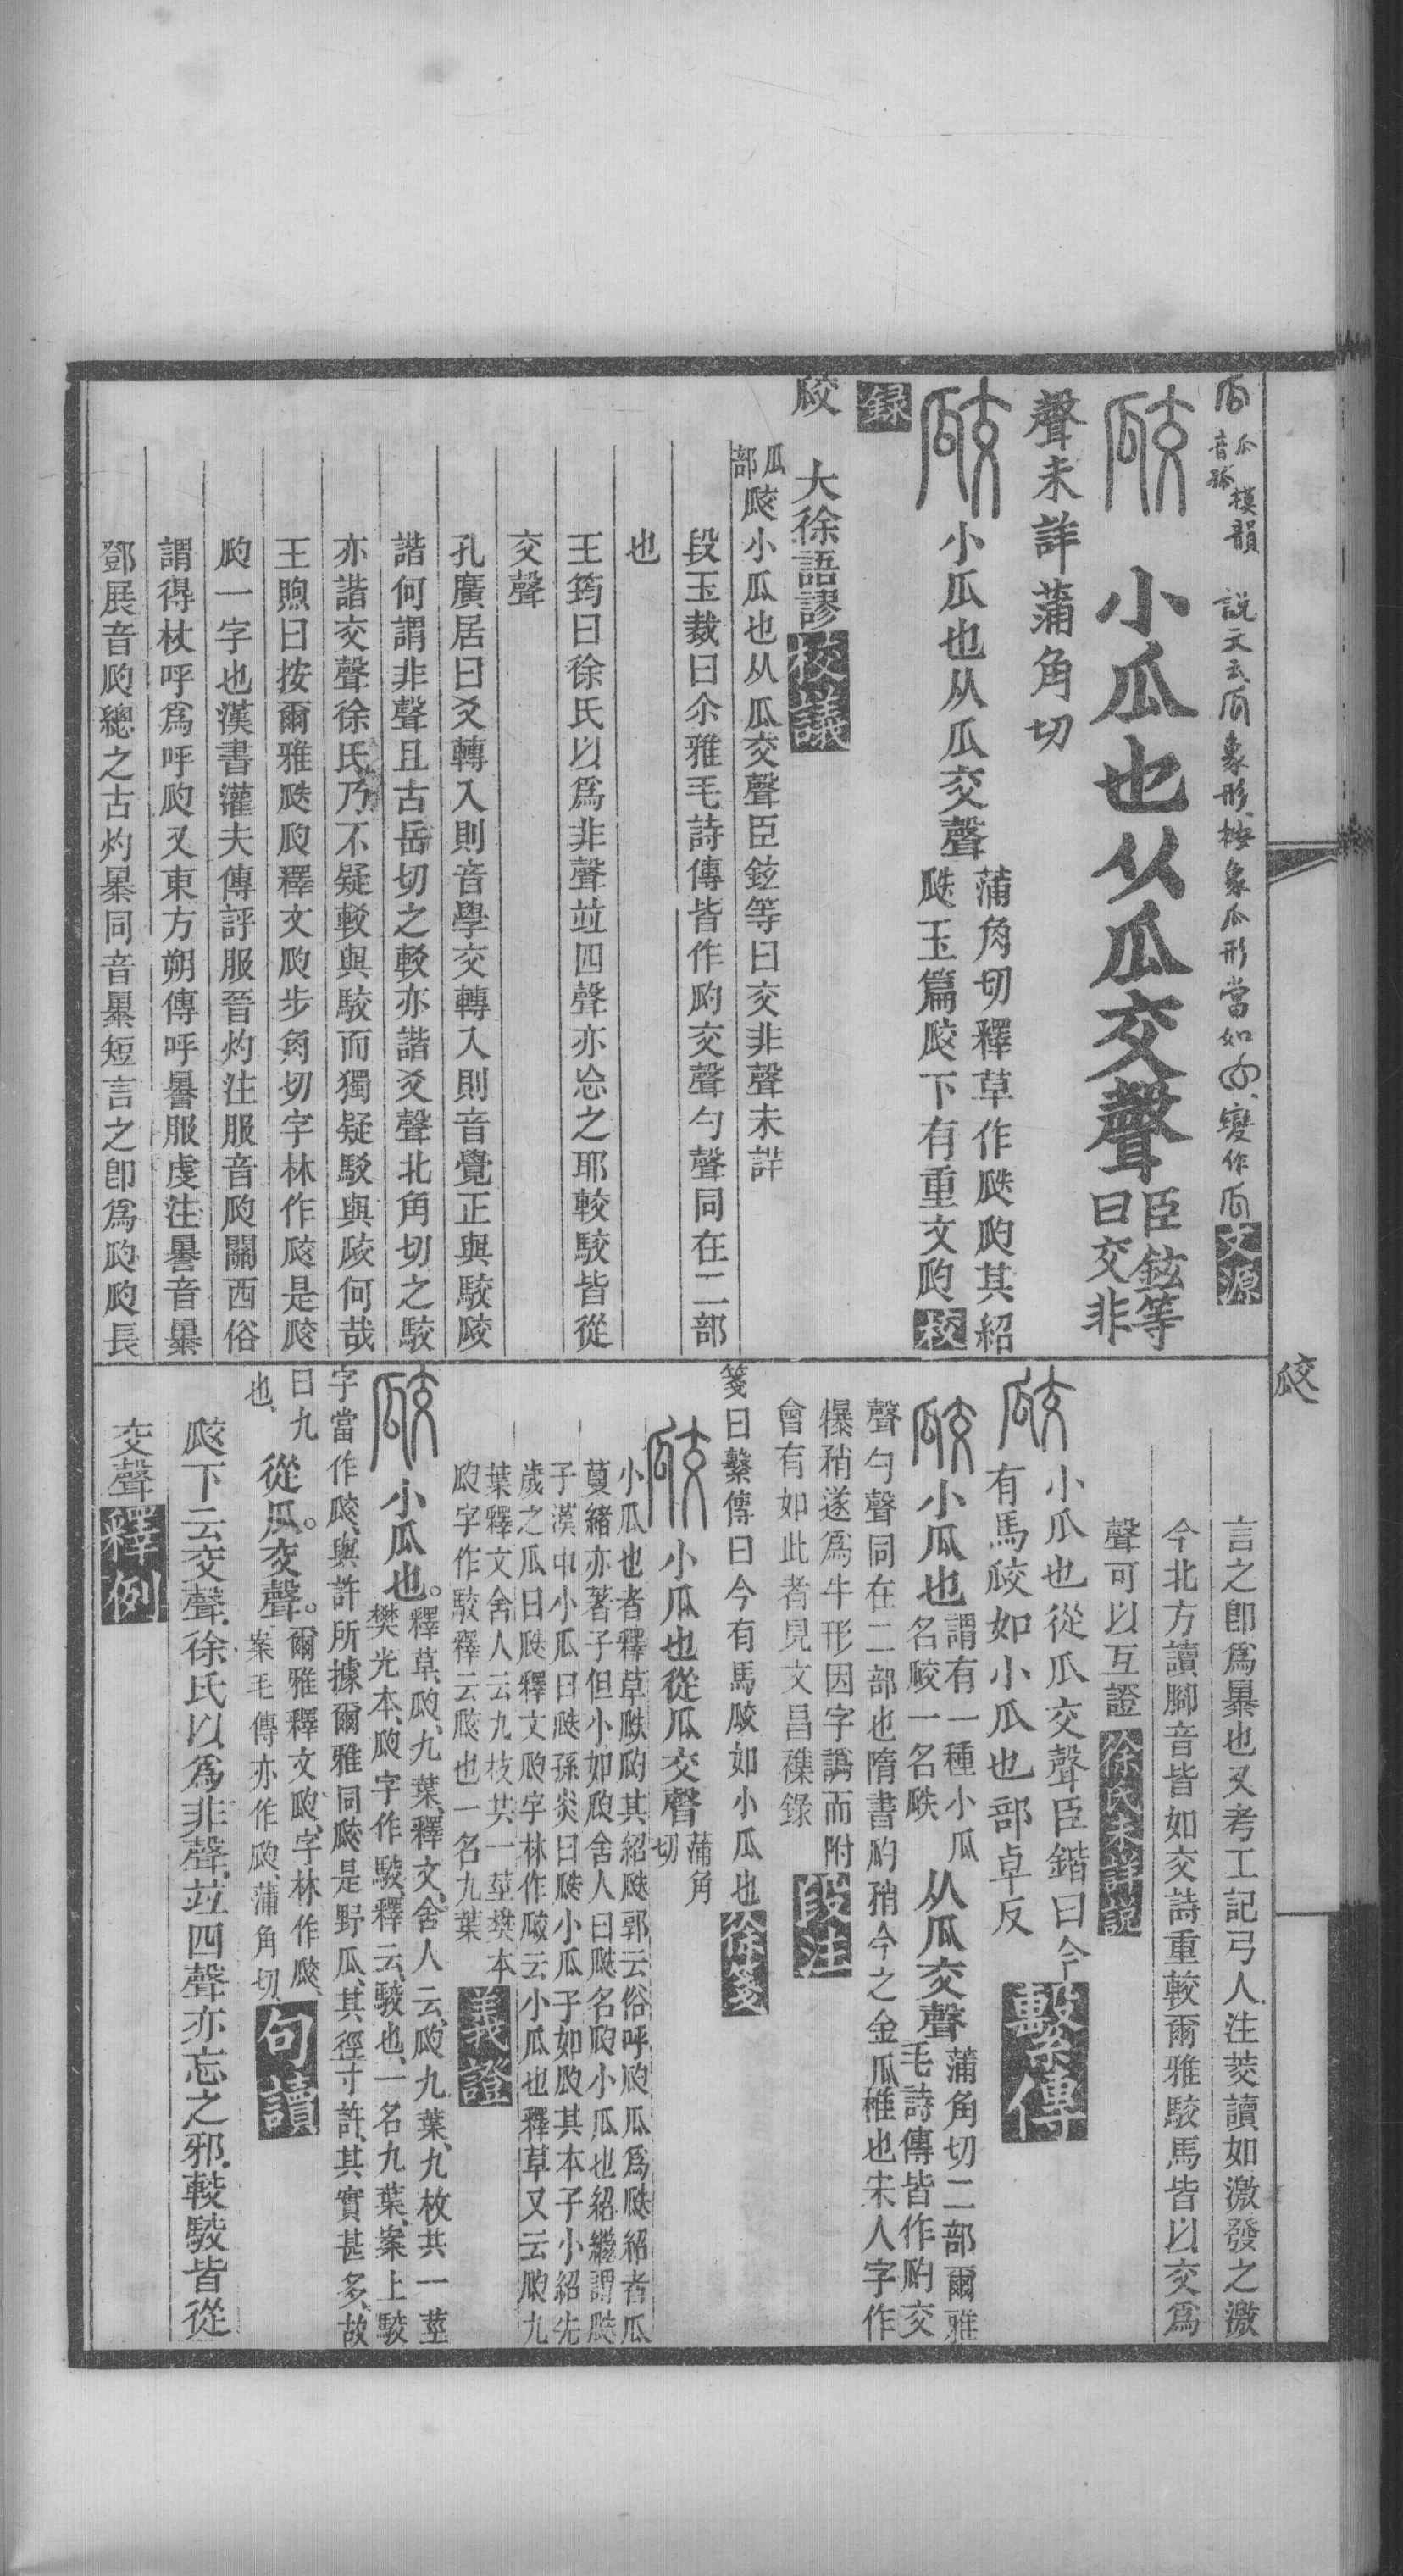 瓜 音孤 模韻 説文云𠂆象形按象瓜形當如 變作 文源
㼎 小瓜也从瓜交聲臣鉉等曰交非
聲未詳蒲角切
㼎 小瓜也从瓜交聲蒲角切釋草作瓞瓝其紹瓞玉篇㼎下有重文瓝校
錄
㼎 大徐語謬校議
瓜部㼎小瓜也从瓜交聲臣鉉等曰交非聲未詳
段玉裁曰尒雅毛詩傳皆作瓝交聲勺聲同在二部
也
王筠曰徐氏以爲非聲竝四聲亦忘之耶較駮皆從
交聲
孔廣居曰爻轉入則音學交轉入則音覺正與駮㼎
諧何謂非聲且古岳切之較亦諧爻聲北角切之駮
亦諧交聲徐氏乃不疑較與駮而獨疑駁與㼎何哉
王煦曰按爾雅瓞瓝釋文瓝步角切字林作㼎是㼎
瓝一字也漢書灌夫傳謼服晉灼注服音瓝關西俗
謂得杖呼爲呼瓝又東方朔傳呼謈服虔注謈音暴
鄧展音瓝總之古灼暴同音暴短言之卽爲瓝瓝長
言之卽爲暴也又考工記弓人注茭讀如激發之激
今北方讀腳音皆如交詩重較爾雅駮馬皆以交爲
聲可以互證徐氏未詳說
㼎 小瓜也從瓜交聲臣鍇曰今
有馬㼎如小瓜也部卓反 繫傳
㼎 小瓜也謂有一種小瓜名㼎一名瓞从瓜交聲蒲角切二部爾雅毛詩傳皆作瓝交
聲勺聲同在二部也隋書瓝矟今之金瓜椎也宋人字作
犦矟遂爲牛形因字譌而附
會有如此者見文昌襍錄 段注
箋曰繫傳曰今有馬㼎如小瓜也徐箋
㼎 小瓜也從瓜交聲蒲角切
小瓜也者釋草瓞瓝其紹瓞郭云俗呼瓝瓜爲瓞紹者瓜
蔓緒亦著子但小如瓝舍人曰瓞名瓝小瓜也紹繼謂瓞
子漢中小瓜曰瓞孫炎曰瓞小瓜子如瓝其本子小紹先
歲之瓜曰瓞釋文瓝字林作㼎云小瓜也釋草又云瓝九
葉釋文舍人云九枝共一莖樊本
瓝字作駮釋云㼎也一名九葉 義證
㼎 小瓜也。釋草、瓝、九葉、釋文、舍人云、瓝九葉、九枚共一莖
樊光本、瓝字作駮、釋云、駮也、一名九葉、案上駮
字當作㼎、與許所據爾雅同、㼎是野瓜、其徑寸許、其實甚多、故
曰九
也、 從瓜。交聲。爾雅釋文、瓝、字林作㼎、案毛傳亦作瓝、蒲角切、句讀
㼎下云交聲、徐氏以爲非聲、竝四聲亦忘之邪、較駮皆從
交聲 釋例
㼎